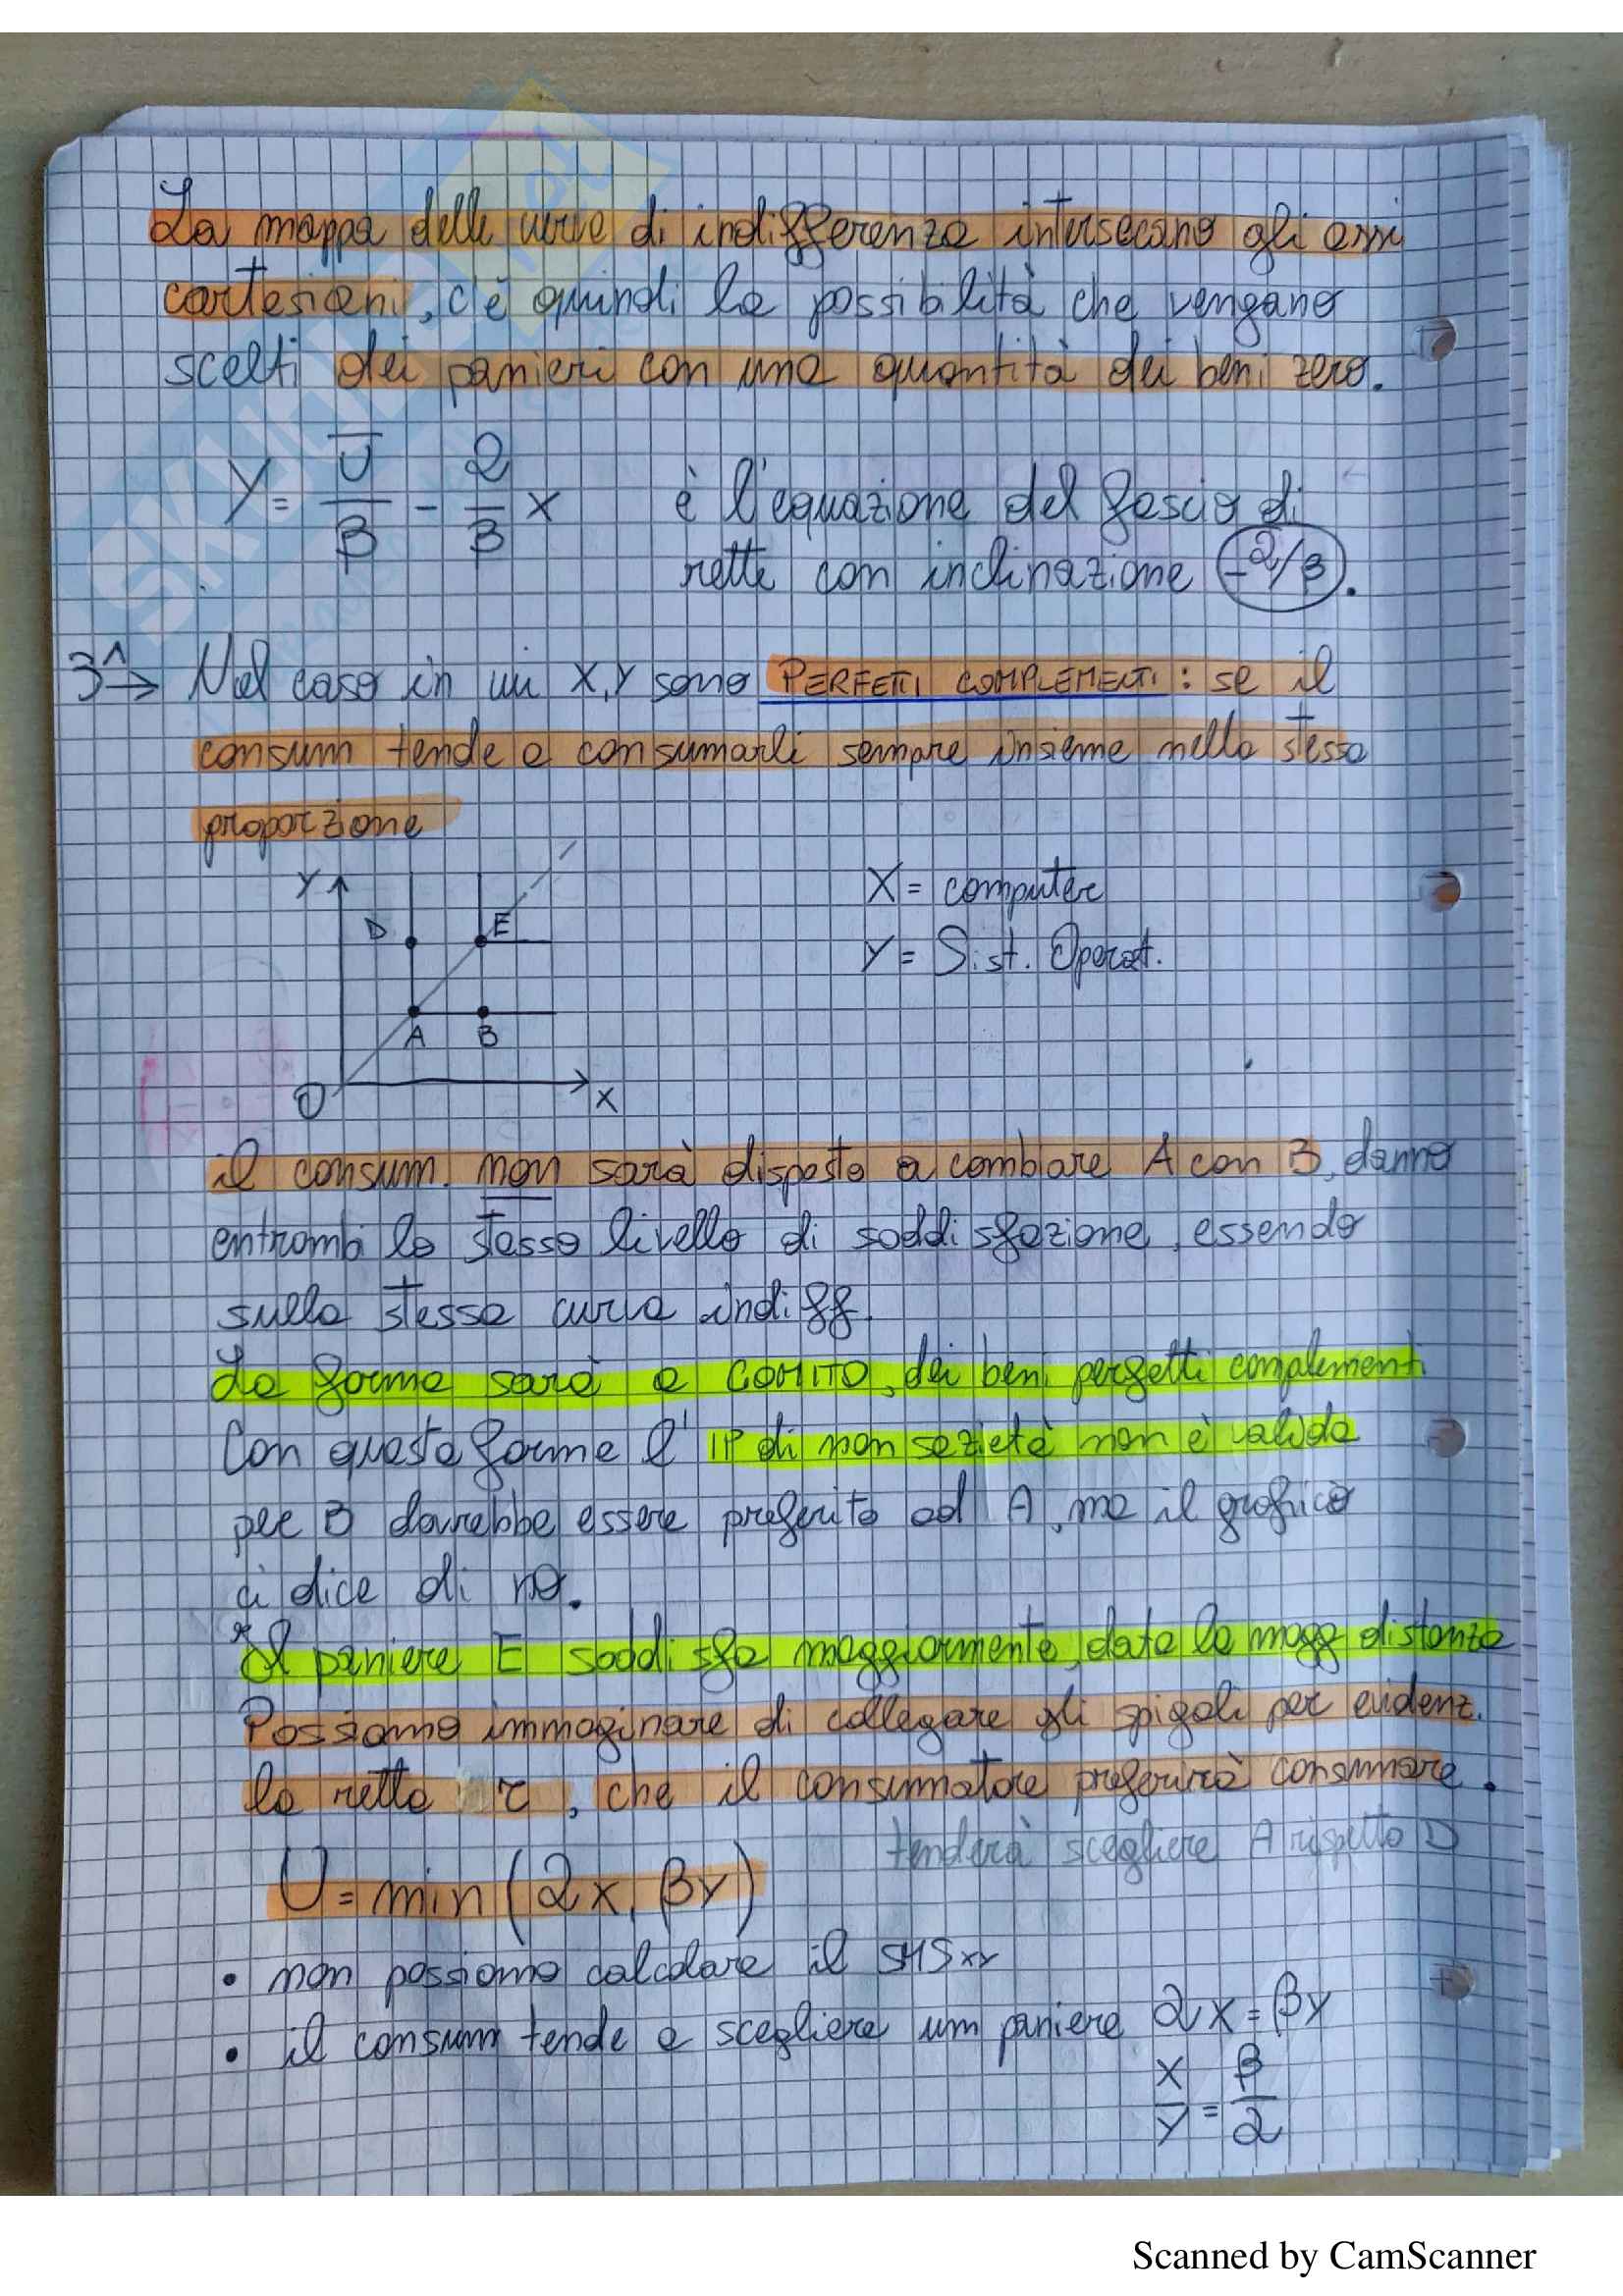 La mappa delle curve di indifferenza intersecano gli assi
cartesiani, c'è quindi la possibilità che vengano
scelti dei panieri con una quantità dei beni zero.
Y = Ū/β - α/β X è l'equazione del fascio di
rette con inclinazione -α/β.
3^→ Nel caso in cui X,Y sono PERFETTI COMPLEMENTI: se il
consum tende a consumarli sempre insieme nella stessa
proporzione
Y
D
E
A
B
O
X
X = computer
Y = Sist. Operat.
il consum. non sarà disposto a cambiare A con B, danno
entrambi lo stesso livello di soddisfazione, essendo
sulla stessa curva indiff.
La forma sarà a GOMITO, dei beni perfetti complementi
Con questa forma l' IP di non sazietà non è valida
per B dovrebbe essere preferito ad A, ma il grafico
ci dice di no.
*Il paniere E soddisfa maggiormente, data la magg distanza
Possiamo immaginare di collegare gli spigoli per evidenz.
la retta r, che il consumatore preferirà consumare.
tenderà scegliere A rispetto D
U = min (αx, βy)
• non possiamo calcolare il SMSxy
• il consum tende a scegliere un paniere αx = βy
x/y = β/α
Scanned by CamScanner